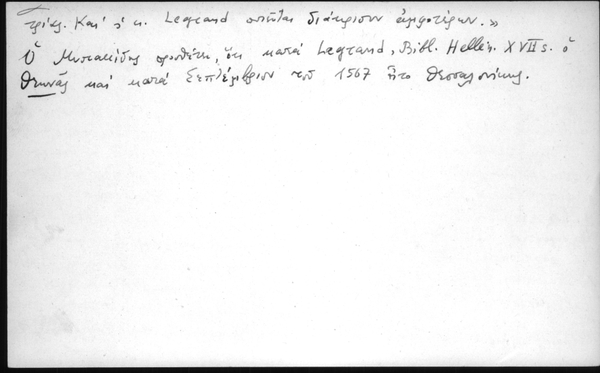 τριάρ. Καὶ ὁ κ. Legrand ποιεῖται διάκρισιν ἀμφοτέρων.»
Ὁ Μυστακίδης προσθέτει, ὅτι κατὰ Legrand, Bibl. Hellén. XVII s. ὁ
Θεωνᾶς καὶ κατὰ Σεπτέμβριον τοῦ 1567 ἦτο Θεσσαλονίκης.